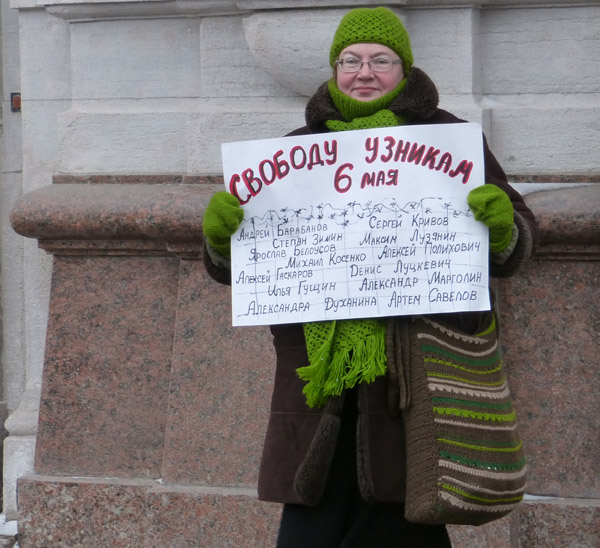 СВОБОДУ УЗНИКАМ
6 МАЯ
Андрей Барабанов Сергей Кривов
Степан Зимин Максим Лузянин
Ярослав Белоусов Алексей Полихович
Михаил Косенко
Алексей Гаскаров Денис Луцкевич
Илья Гущин Александр Марголин
Александра Духанина Артем Савелов